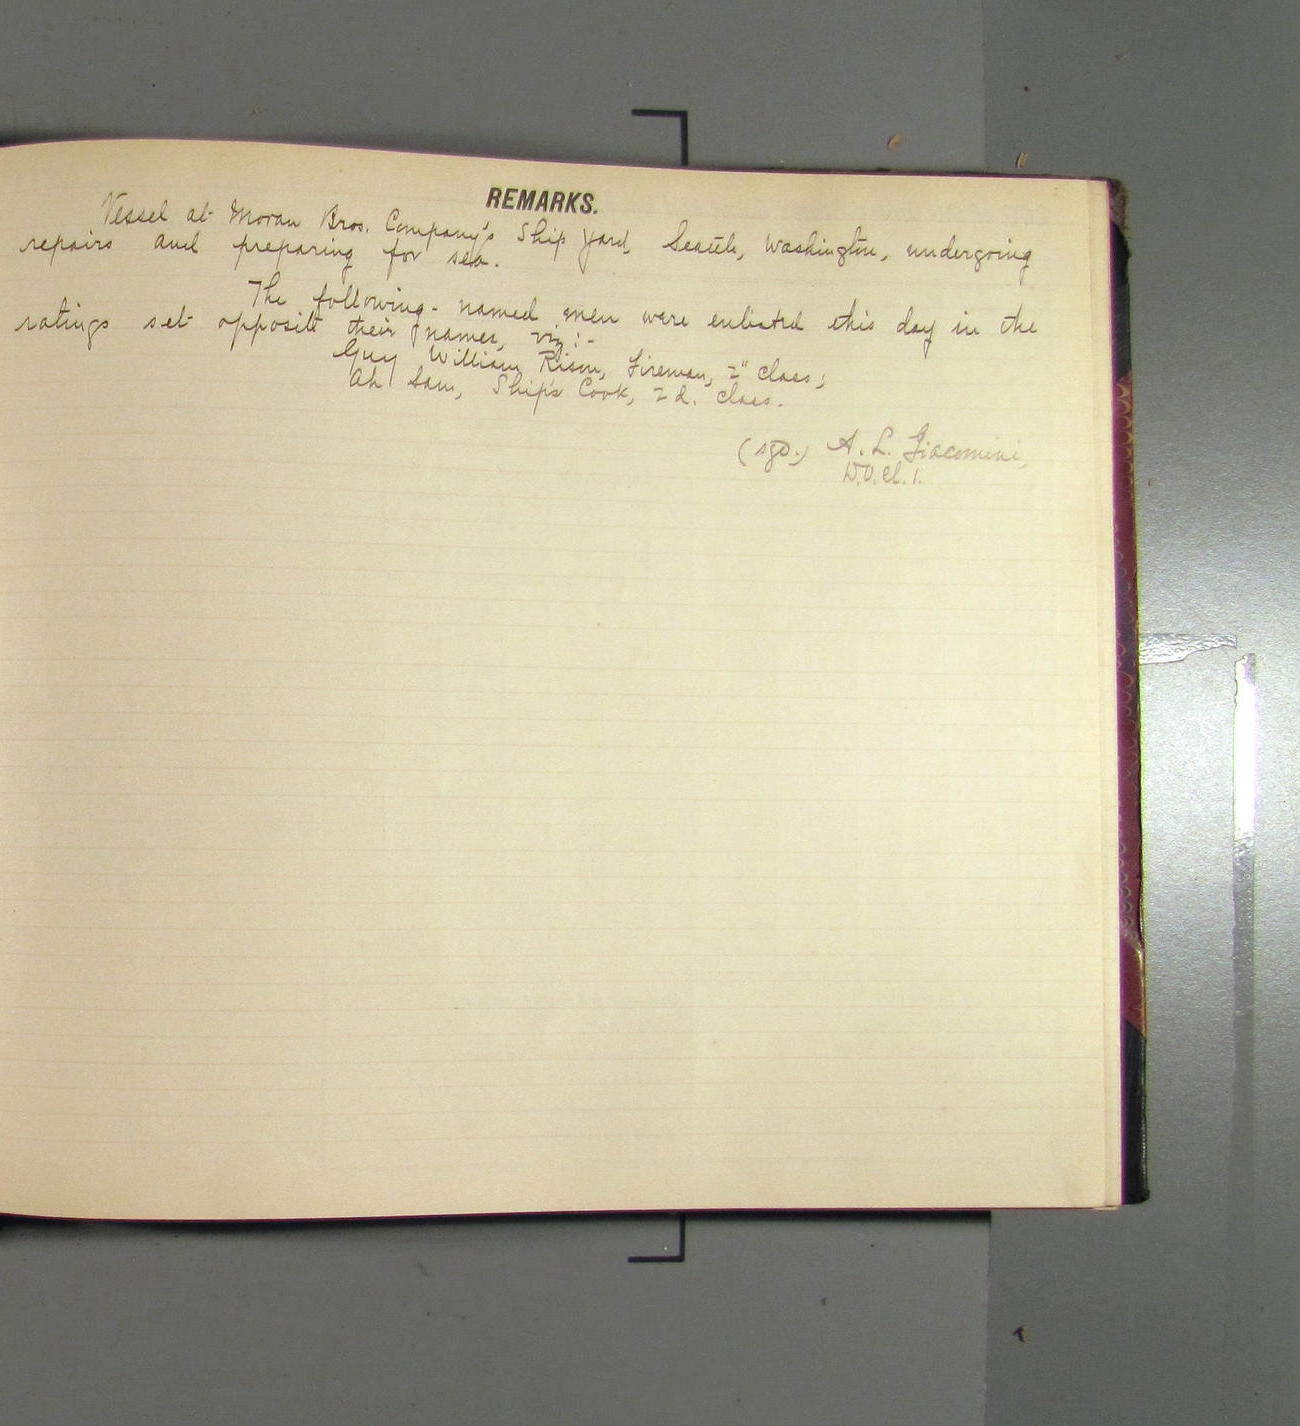 REMARKS.
Vessel at Moran Bros. Company's Ship Yard, Seattle, Washington, undergoing
repairs and preparing for sea.
The following-named men were enlisted this day in the
ratings set opposite their names, viz:-
Guy William Rison, Fireman, 2" class;
Ah Sam, Ship's Cook, 2d. class.
(sgd.) A. L. Giacomini,
W.O. cl. 1.